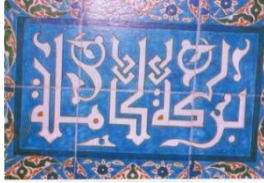 بركة كاملة